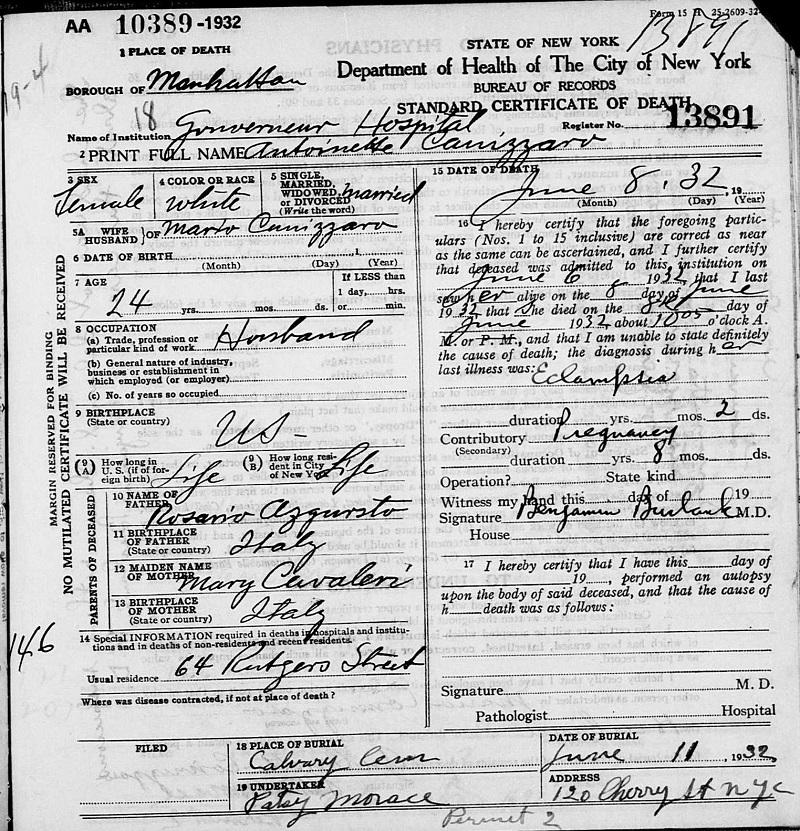 AA 10389-1932
Form 15 H 25-2609-32
13891
1 PLACE OF DEATH
BOROUGH OF Manhattan
STATE OF NEW YORK
Department of Health of The City of New York
BUREAU OF RECORDS
STANDARD CERTIFICATE OF DEATH
18
Name of Institution Gouverneur Hospital
Register No. 13891
2 PRINT FULL NAME Antoinette Canizzaro
3 SEX
Female
4 COLOR OR RACE
White
5 SINGLE,
MARRIED,
WIDOWED,
OR DIVORCED
(Write the word)
married
5A WIFE
HUSBAND } OF Mario Canizzaro
6 DATE OF BIRTH
(Month) (Day) (Year)
7 AGE
24 yrs. mos. ds.
If LESS than
1 day, hrs.
or min.
8 OCCUPATION
(a) Trade, profession or
particular kind of work
(b) General nature of industry,
business or establishment in
which employed (or employer)
(c) No. of years so occupied
9 BIRTHPLACE
(State or country)
US
(9 A) How long in
U. S. (if of for-
eign birth) Life
(9 B) How long resi-
dent in City
of New York Life
PARENTS OF DECEASED
10 NAME OF
FATHER
Rosario
11 BIRTHPLACE
OF FATHER
(State or country) Italy
12 MAIDEN NAME
OF MOTHER
Mary Cavaleri
13 BIRTHPLACE
OF MOTHER
(State or country) Italy
14 Special INFORMATION required in deaths in hospitals and institu-
tions and in deaths of non-residents and recent residents.
146
Usual residence 64 Rutgers Street
Where was disease contracted, if not at place of death ?
MARGIN RESERVED FOR BINDING
NO MUTILATED CERTIFICATE WILL BE RECEIVED
15 DATE OF DEATH
June 8, 32 19
(Month) (Day) (Year)
16 I hereby certify that the foregoing partic-
ulars (Nos. 1 to 15 inclusive) are correct as near
as the same can be ascertained, and I further certify
that deceased was admitted to this institution on
June 6 1932, that I last
saw her alive on the 8 day of June
1932, that She died on the 8 day of
June 1932 about 10 05 o'clock A.
M. or P. M., and that I am unable to state definitely
the cause of death; the diagnosis during her
last illness was: Eclampsia
duration yrs. mos. 2 ds.
Contributory Pregnancy
(Secondary)
duration yrs. 8 mos. ds.
Operation? State kind
Witness my hand this day of 19
Signature Benjamin Burbank M.D.
House
17 I hereby certify that I have this day of
19 , performed an autopsy
upon the body of said deceased, and that the cause of
h death was as follows:
Signature M. D.
Pathologist Hospital
FILED
18 PLACE OF BURIAL
Calvary Cem
DATE OF BURIAL
June 11, 1932
19 UNDERTAKER
Patsy Morace
ADDRESS
120 Cherry St NYC
Permit 2